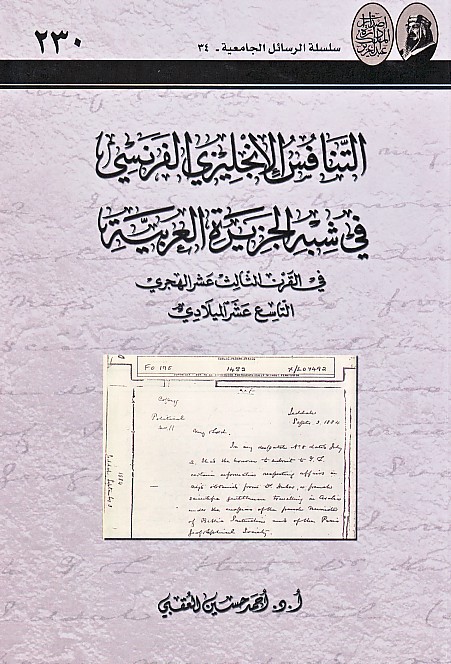 ٢٣٠
سلسلة الرسائل الجامعية - ٣٤
التنافس الإنجليزي الفرنسي
في شبه الجزيرة العربية
في القرن الثالث عشر الهجري
التاسع عشر الميلادي
FO 195
1482
X/L07492
Copy
Political
My Lord,
In my despatch No 8 dated July
I had the honour to submit to
certain information respecting affairs in
obtained from
scientific gentleman travelling in Arabia
under the auspices of the french Minister
of Public Instruction and of the Paris
geographical Society.
أ. د. أحمد حسين العقبي